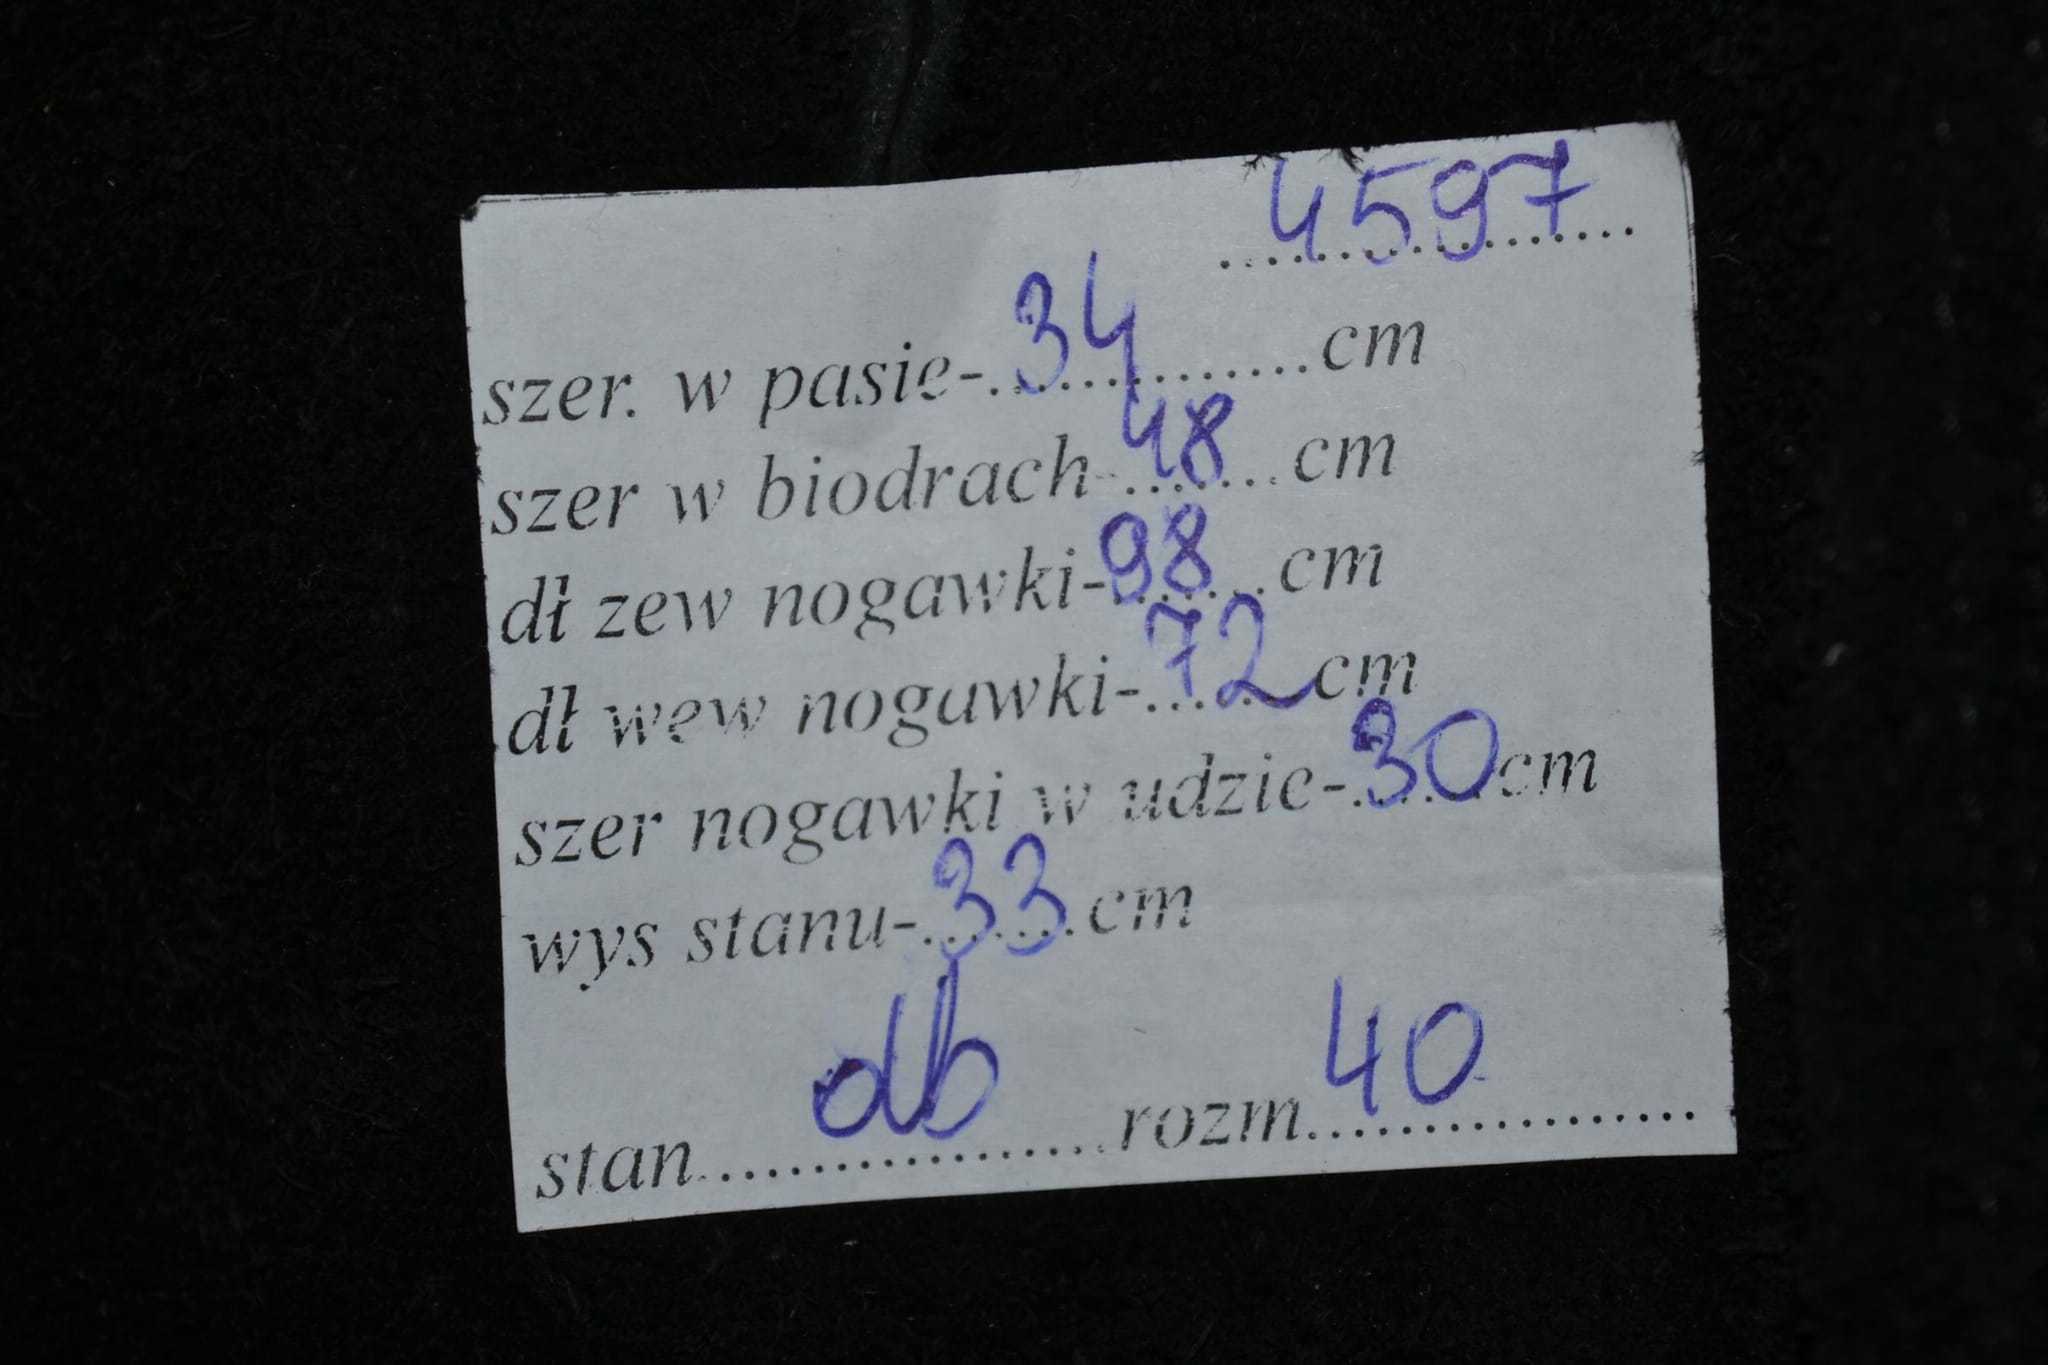 4597
szer. w pasie-.34............cm
szer w biodrach-.48......cm
dł zew nogawki-98......cm
dł wew nogawki-....72cm
szer nogawki w udzie-.30cm
wys stanu-.33.cm
stan......db......rozm.40.................